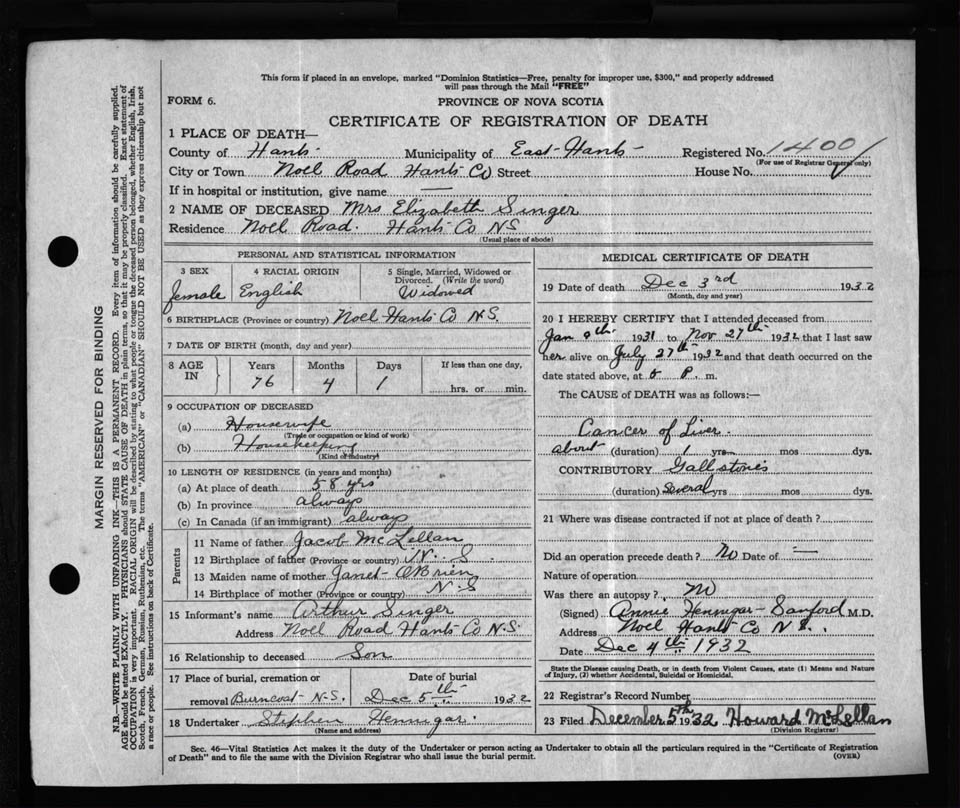 This form if placed in an envelope, marked "Dominion Statistics—Free, penalty for improper use, $300," and properly addressed
will pass through the Mail "FREE"
FORM 6.
PROVINCE OF NOVA SCOTIA
CERTIFICATE OF REGISTRATION OF DEATH
1 PLACE OF DEATH—
County of Hants Municipality of East-Hants Registered No. 1400
(For use of Registrar General only)
City or Town Noel Road Hants Co Street House No.
If in hospital or institution, give name —
2 NAME OF DECEASED Mrs Elizabeth Singer
Residence Noel Road. Hants Co N S
(Usual place of abode)
PERSONAL AND STATISTICAL INFORMATION
3 SEX
female
4 RACIAL ORIGIN
English
5 Single, Married, Widowed or
Divorced. (Write the word)
Widowed
6 BIRTHPLACE (Province or country) Noel Hants Co N.S.
7 DATE OF BIRTH (month, day and year)
8 AGE IN
Years Months Days If less than one day,
76 4 1 hrs. or min.
9 OCCUPATION OF DECEASED
(a) Housewife
(Trade or occupation or kind of work)
(b) Housekeeping
(Kind of industry)
10 LENGTH OF RESIDENCE (in years and months)
(a) At place of death 58 yrs
(b) In province always
(c) In Canada (if an immigrant) always
Parents
11 Name of father Jacob McLellan
12 Birthplace of father (Province or country) N. S.
13 Maiden name of mother Janet O'Brien
14 Birthplace of mother (Province or country) N. S
15 Informant's name Arthur Singer
Address Noel Road Hants Co N.S.
16 Relationship to deceased Son
17 Place of burial, cremation or removal Burncoat N.S.
Date of burial
Dec 5th 1932
18 Undertaker Stephen Hennigar
(Name and address)
MEDICAL CERTIFICATE OF DEATH
19 Date of death Dec 3rd 1932
(Month, day and year)
20 I HEREBY CERTIFY that I attended deceased from
Jan 1931 to Nov 27th 1932 that I last saw
her alive on July 27th 1932 and that death occurred on the
date stated above, at P. m.
The CAUSE of DEATH was as follows:—
Cancer of Liver.
about (duration) 1 yrs mos dys.
CONTRIBUTORY Gall stones
(duration) Several yrs mos dys.
21 Where was disease contracted if not at place of death?
Did an operation precede death? No Date of —
Nature of operation
Was there an autopsy? No
(Signed) Annie Hennigar-Sanford M.D.
Address Noel Hants Co N S.
Date Dec 4th 1932
State the Disease causing Death, or in death from Violent Causes, state (1) Means and Nature
of Injury, (2) whether Accidental, Suicidal or Homicidal.
22 Registrar's Record Number
23 Filed December 5th 1932 Howard McLellan
(Division Registrar)
Sec. 46—Vital Statistics Act makes it the duty of the Undertaker or person acting as Undertaker to obtain all the particulars required in the "Certificate of Registration
of Death" and to file the same with the Division Registrar who shall issue the burial permit.
(OVER)
MARGIN RESERVED FOR BINDING
N.B.—WRITE PLAINLY WITH UNFADING INK—THIS IS A PERMANENT RECORD. Every item of information should be carefully supplied.
AGE should be stated EXACTLY. PHYSICIANS should STATE CAUSE OF DEATH in plain terms, so that it may be properly classified. Exact statement of
OCCUPATION is very important. RACIAL ORIGIN will be described by stating to what people or tongue the deceased person belonged, whether English, Irish,
Scotch, French, German, Russian, Ruthenian, etc. The terms "AMERICAN" or "CANADIAN" SHOULD NOT BE USED as they express citizenship but not
a race or people. See instructions on back of Certificate.